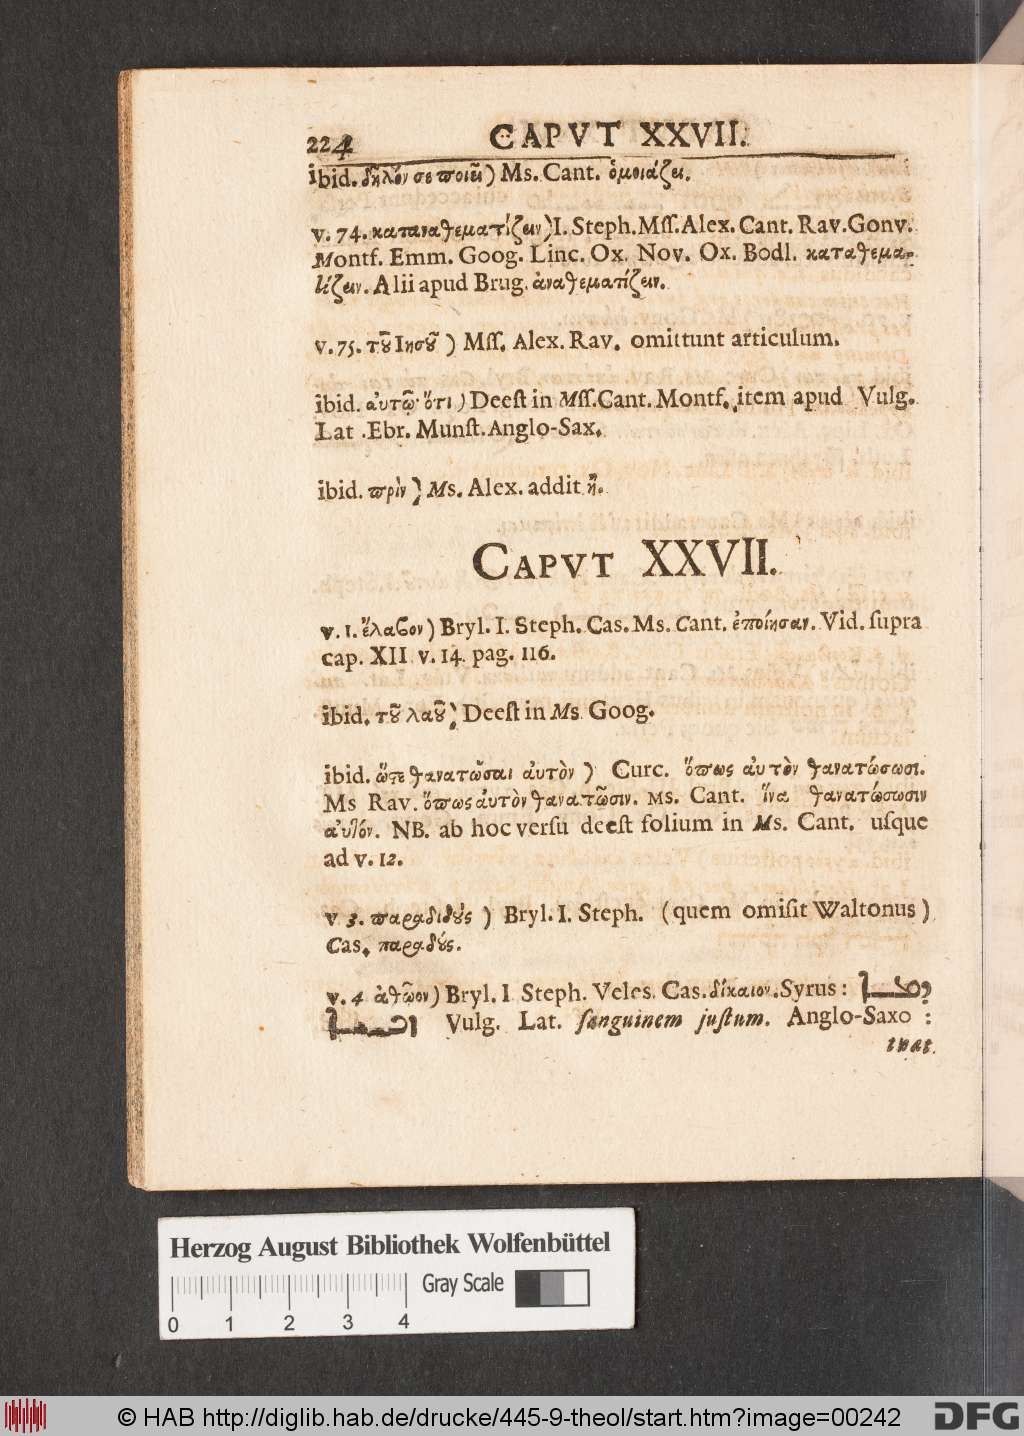 224 CAPVT XXVII.
ibid. δῆλόν σε ποιεῖ) Ms. Cant. ὁμοιάζει.
v. 74. καταναθεματίζειν) I. Steph. Mſſ. Alex. Cant. Rav. Gonv.
Montf. Emm. Goog. Linc. Ox. Nov. Ox. Bodl. καταθεμα-
τίζειν. Alii apud Brug. ἀναθεματίζειν.
v. 75. τοῦ Ιησοῦ) Mſſ. Alex. Rav. omittunt articulum.
ibid. αὐτῷ· ὅτι) Deeſt in Mſſ. Cant. Montf. item apud Vulg.
Lat. Ebr. Munſt. Anglo-Sax.
ibid. πρὶν) Ms. Alex. addit ἢ.
CAPVT XXVII.
v. 1. ἔλαβον) Bryl. I. Steph. Cas. Ms. Cant. ἐποίησαν. Vid. ſupra
cap. XII v. 14. pag. 116.
ibid. τοῦ λαοῦ) Deeſt in Ms Goog.
ibid. ὥστε θανατῶσαι αὐτὸν) Curc. ὅπως αὐτὸν θανατώσωσι.
Ms Rav. ὅπως αὐτὸν θανατῶσιν. Ms. Cant. ἵνα θανατώσωσιν
αὐτόν. NB. ab hoc verſu deeſt folium in Ms. Cant. uſque
ad v. 12.
v 3. παραδιδούς) Bryl. I. Steph. (quem omiſit Waltonus)
Cas. παραδούς.
v. 4 ἀθῷον) Bryl. I Steph. Veles. Cas. δίκαιον. Syrus:
Vulg. Lat. ſanguinem juſtum. Anglo-Saxo:
that
Herzog August Bibliothek Wolfenbüttel
Gray Scale
0 1 2 3 4
© HAB http://diglib.hab.de/drucke/445-9-theol/start.htm?image=00242
DFG